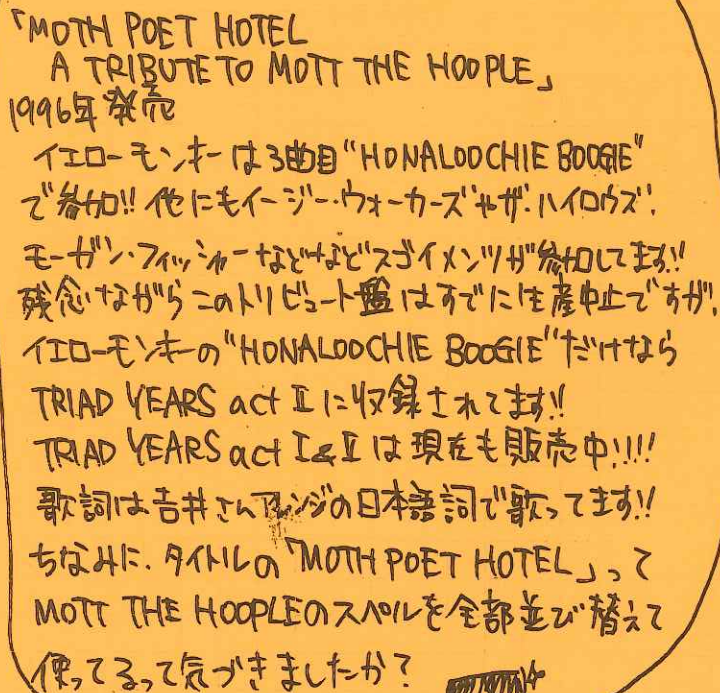 「MOTH POET HOTEL
A TRIBUTE TO MOTT THE HOOPLE」
1996年発売
イエローモンキーは3曲目"HONALOOCHIE BOOGIE"
で参加!! 他にもイージー・ウォーカーズやザ・ハイロウズ、
モーガン・フィッシャーなどなどスゴイメンツが参加してます!!
残念ながらこのトリビュート盤はすでに生産中止ですが、
イエローモンキーの"HONALOOCHIE BOOGIE"だけなら
TRIAD YEARS act Ⅱに収録されてます!!
TRIAD YEARS act Ⅰ&Ⅱは現在も販売中!!!!
歌詞は吉井さんアレンジの日本語詞で歌ってます!!
ちなみに、タイトルの「MOTH POET HOTEL」って
MOTT THE HOOPLEのスペルを全部並び替えて
使ってるって気づきましたか?